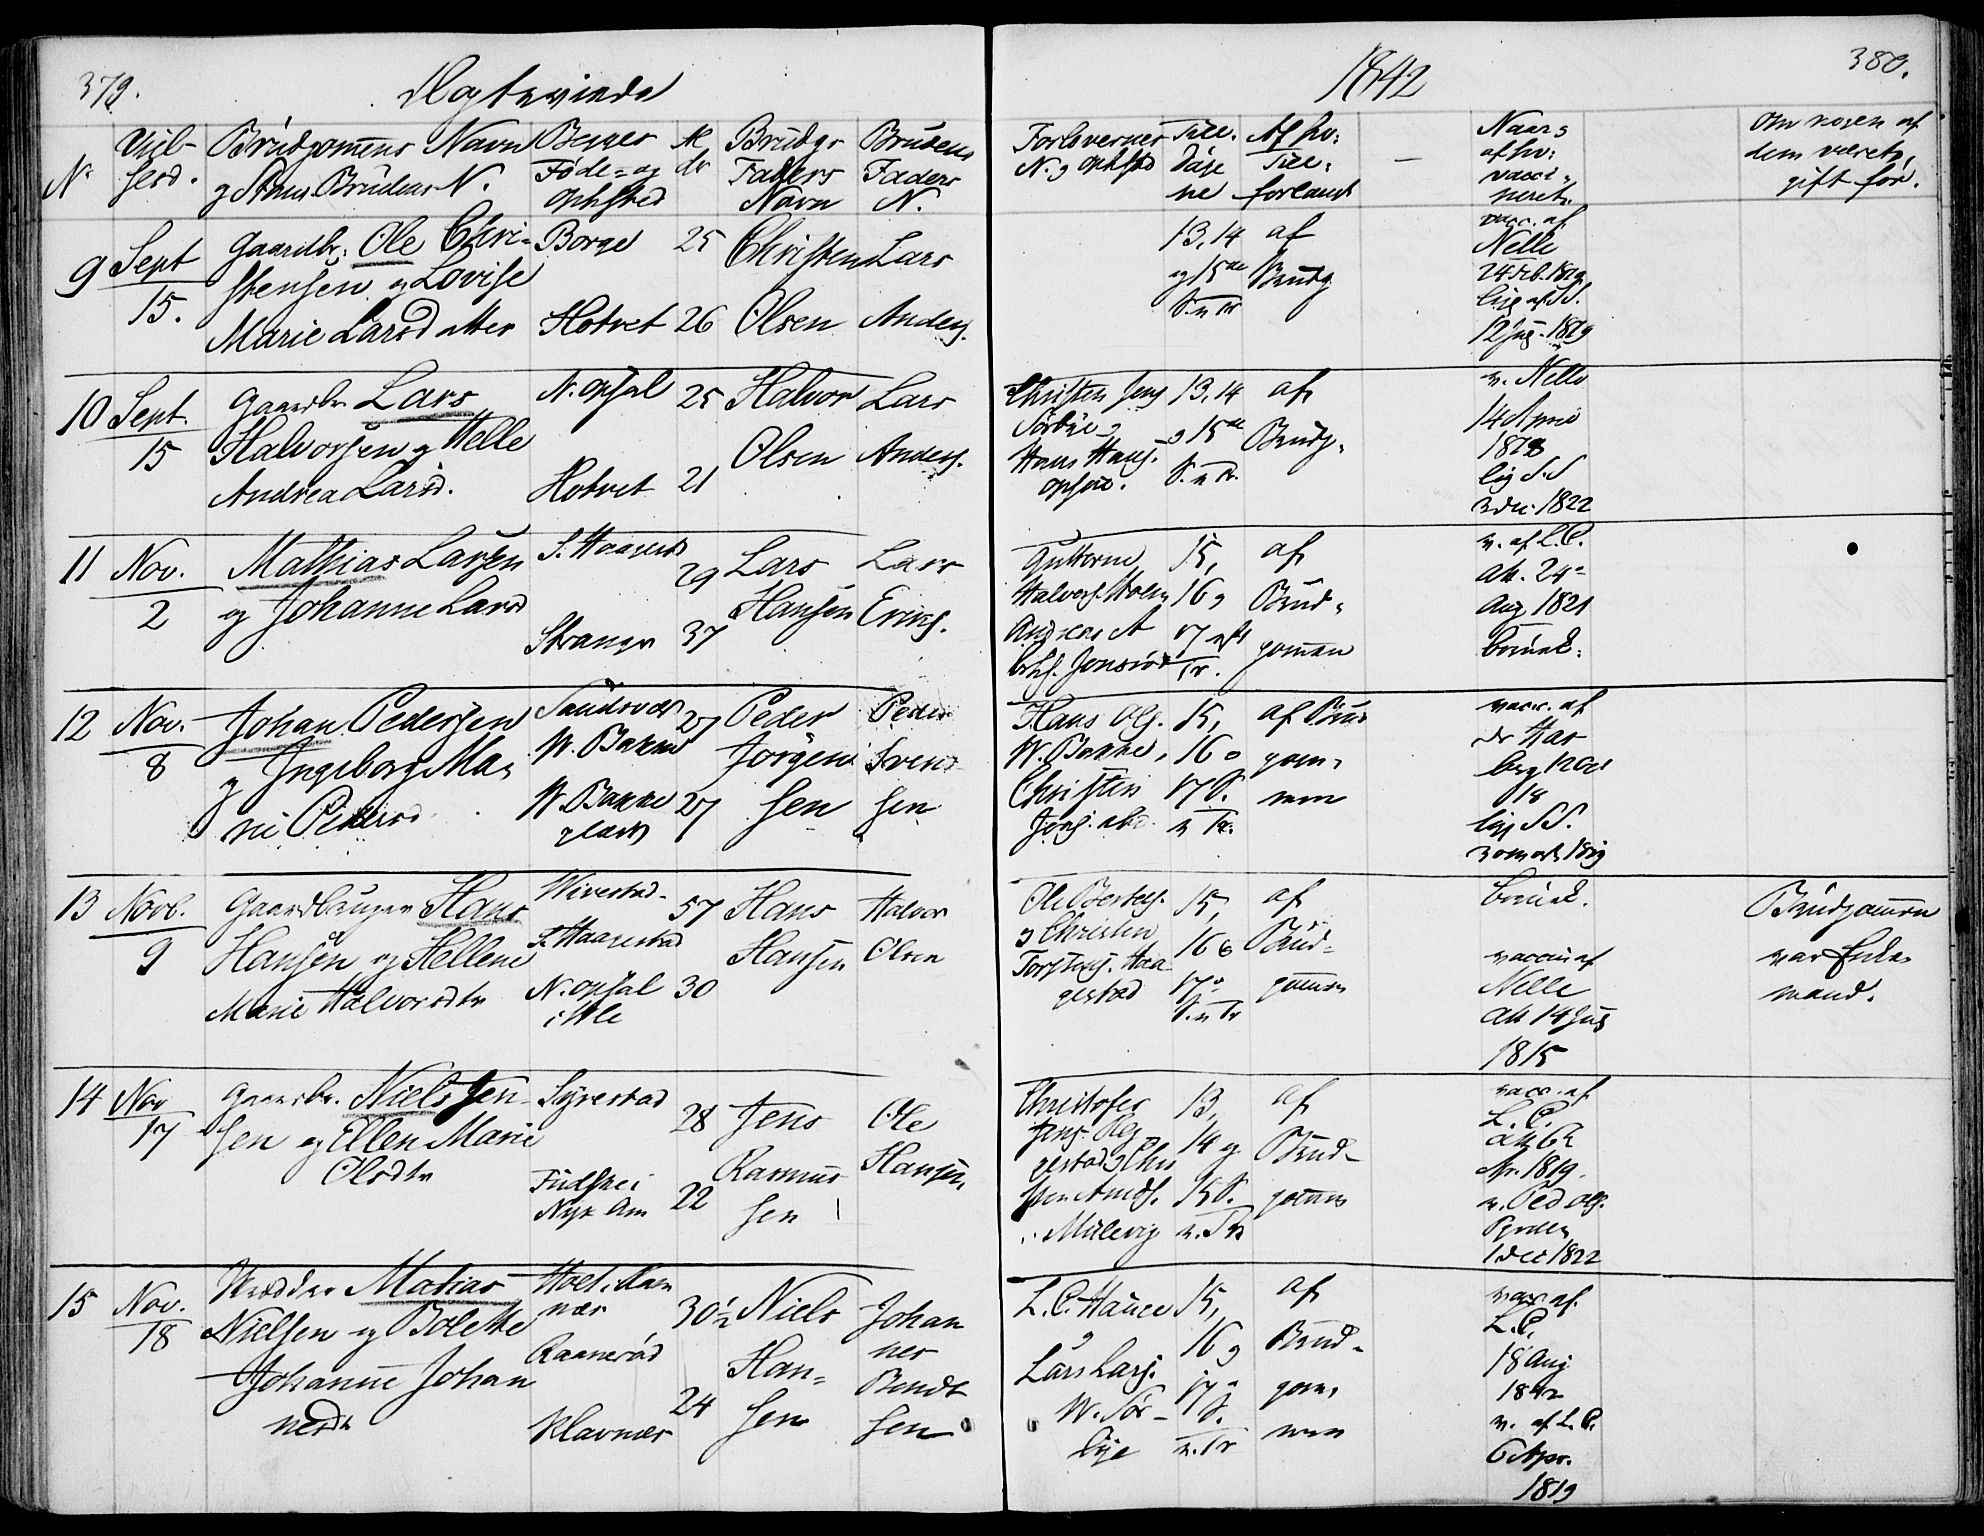 379.
Ægtevieda
1842
380.
N.
Viel-
sesd.
Brudgommens Navn
og Stand. Brudens N.
Begges
Føde- og
Ophsted
Al
dr
Brudgs
Faders
Navn
Brudens
Faders
N.
Forloverner
N. og Ophsted
Till.
dage
ne
Af hv:
Till:
forlangt
Naar og
af hv:
vacci-
neret.
Om nogen af
dem været
gift før.
9 Sept
15.
Gaardbr. Ole Chri-
stensen og Lovise
Marie Larsdatter
Borge 25
Hotvet 26
Christen
Olsen
Lars
Anders.
13, 14
og 15de
S. n. Tr
af
Brudg
vacc. af
Nelle
24 Feb. 1819
lig af S.S.
12 Jug. 1819
10 Sept.
15
Gaardbr. Lars
Halvorsen og Helle
Andrea Larsd.
N. Opsal 25
Hotvet 21
Halvor
Olsen
Lars
Anders.
Christen Jens
Sørbye og
Hans Hans.
Opsal.
13, 14
og 15de
S. n. Tr.
af
Brudg.
v. Nelle
14 April
1828
lig S.S
3 Dec. 1822
11 Nov.
2
Mathias Larsen
og Johanne Larsd
S. Haagesta
29
Strange 37
Lars
Hansen
Lars
Erics.
Guttorm
Halvors. Holm
Andreas A
Jonsrød
15,
16 og
17 eft
Tr.
af
Brud-
gommen
v. af L.C.
Att. 24
Aug 1821
bruuk.
12 Nov.
8
Johan Pedersen
og Ingeborg Ma-
rie Pedersd
Sandsvær 27
W. Bakke
W. Bakke 27
Peder
Jörgen
sen
Peder
Svend
sen
Hans Ols.
W. Bakke,
Christen
Jörg. ibid.
15,
16 o
17 S.
n Tr.
af Brud
gom-
men
vacc. af
dr Has
berg 12 Oct
18
lig S.S.
30 Mart. 1819
13 Novb.
9
Gaardbruger Hans
Hansen og Hellene
Marie Halvorsdtr
Wivestad 57
S. Haagestad
N. Opsal 30
Hans
Hansen
Halvor
Olsen
Ole Bertels.
og Christen
Torstens. Haa
gestad
15,
16 o
17
S. n Tr
af
Brud-
gommen
bruuk.
vaccin af
Nelle
Att 14 Jug
1815
Brudgommen
var Enke-
mand.
14 Nov
17
Gaardbr. Niels Jen-
sen og Ellen Marie
Olsdtr
Syrestad
28
22
Jens
Rasmus
sen
Ole
Hansen
Christofer
Jens. Reg
gestad og Chri
sten Amds.
Mulevig
13,
14 og
15 S.
n. Tr
af
Brud-
gommen
vacc. af
L. C.
att 6
Apr. 1819.
v. Ped Ols.
1 Dec 1822
15 Nov.
18
Skrædder Matias
Nielsen og Bolette
Johanne Johan
nesdtr
Holt. Kam
næs
30½
Raanerød
24
Klavnæs
Niels
Han-
sen
Johan
nes
Bendt
sen
L. C. Hauce
Lars Lars.
W. Sør-
bye
15,
16 og
17
S.
n. Tr
af
Brud-
gom-
men
vac. af.
L.C.
18 Aug
v. af L.C.
6 Apr.
1819